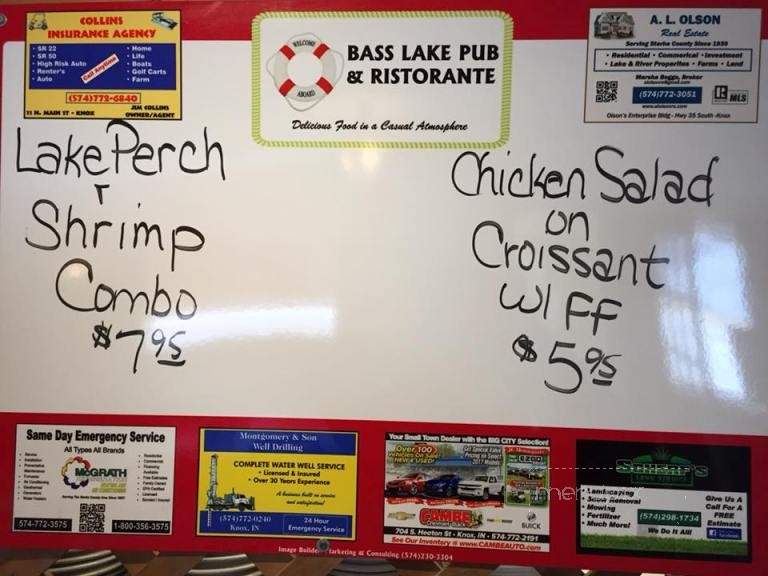 COLLINS
INSURANCE AGENCY
• SR 22
• SR 50
• High Risk Auto
• Renter's
• Auto
Call Anytime
• Home
• Life
• Boats
• Golf Carts
• Farm
(574)772-6840
11 N. MAIN ST - KNOX
JIM COLLINS
OWNER/AGENT
WELCOME
ABOARD
BASS LAKE PUB
& RISTORANTE
Delicious Food in a Casual Atmosphere
A. L. OLSON
Real Estate
Serving Starke County Since 1939
• Residential • Commerical • Investment
• Lake & River Properites • Farms • Land
Marsha Beggs, Broker
(574)772-3051
MLS
Olson's Enterprise Bldg - Hwy 35 South -Knox
Lake Perch
+
Shrimp
Combo
$7.95
Chicken Salad
on
Croissant
w/ FF
$5.95
Same Day Emergency Service
All Types All Brands
McGRATH
574-772-3575
1-800-356-3575
Montgomery & Son
Well Drilling
COMPLETE WATER WELL SERVICE
• Licensed & Insured
• Over 30 Years Experience
A business built on service
and satisfaction!
(574)772-0240
KNOX, IN
24 Hour
Emergency Service
Your Small Town Dealer with the BIG CITY Selection!
Over 100
Vehicles On Sale!
NEW & USED!
CAMBE
BUICK
704 S. Heaton St - Knox, IN - 574-772-2191
See Our Inventory @ www.CAMBEAUTO.com
LAWN SERVICE
• Landscaping
• Snow Removal
• Mowing
• Fertilizer
• Much More!
(574)298-1734
We Do It All!
Give Us A
Call For A
FREE
Estimate
facebook
Image Builders Marketing & Consulting (574)230-3304